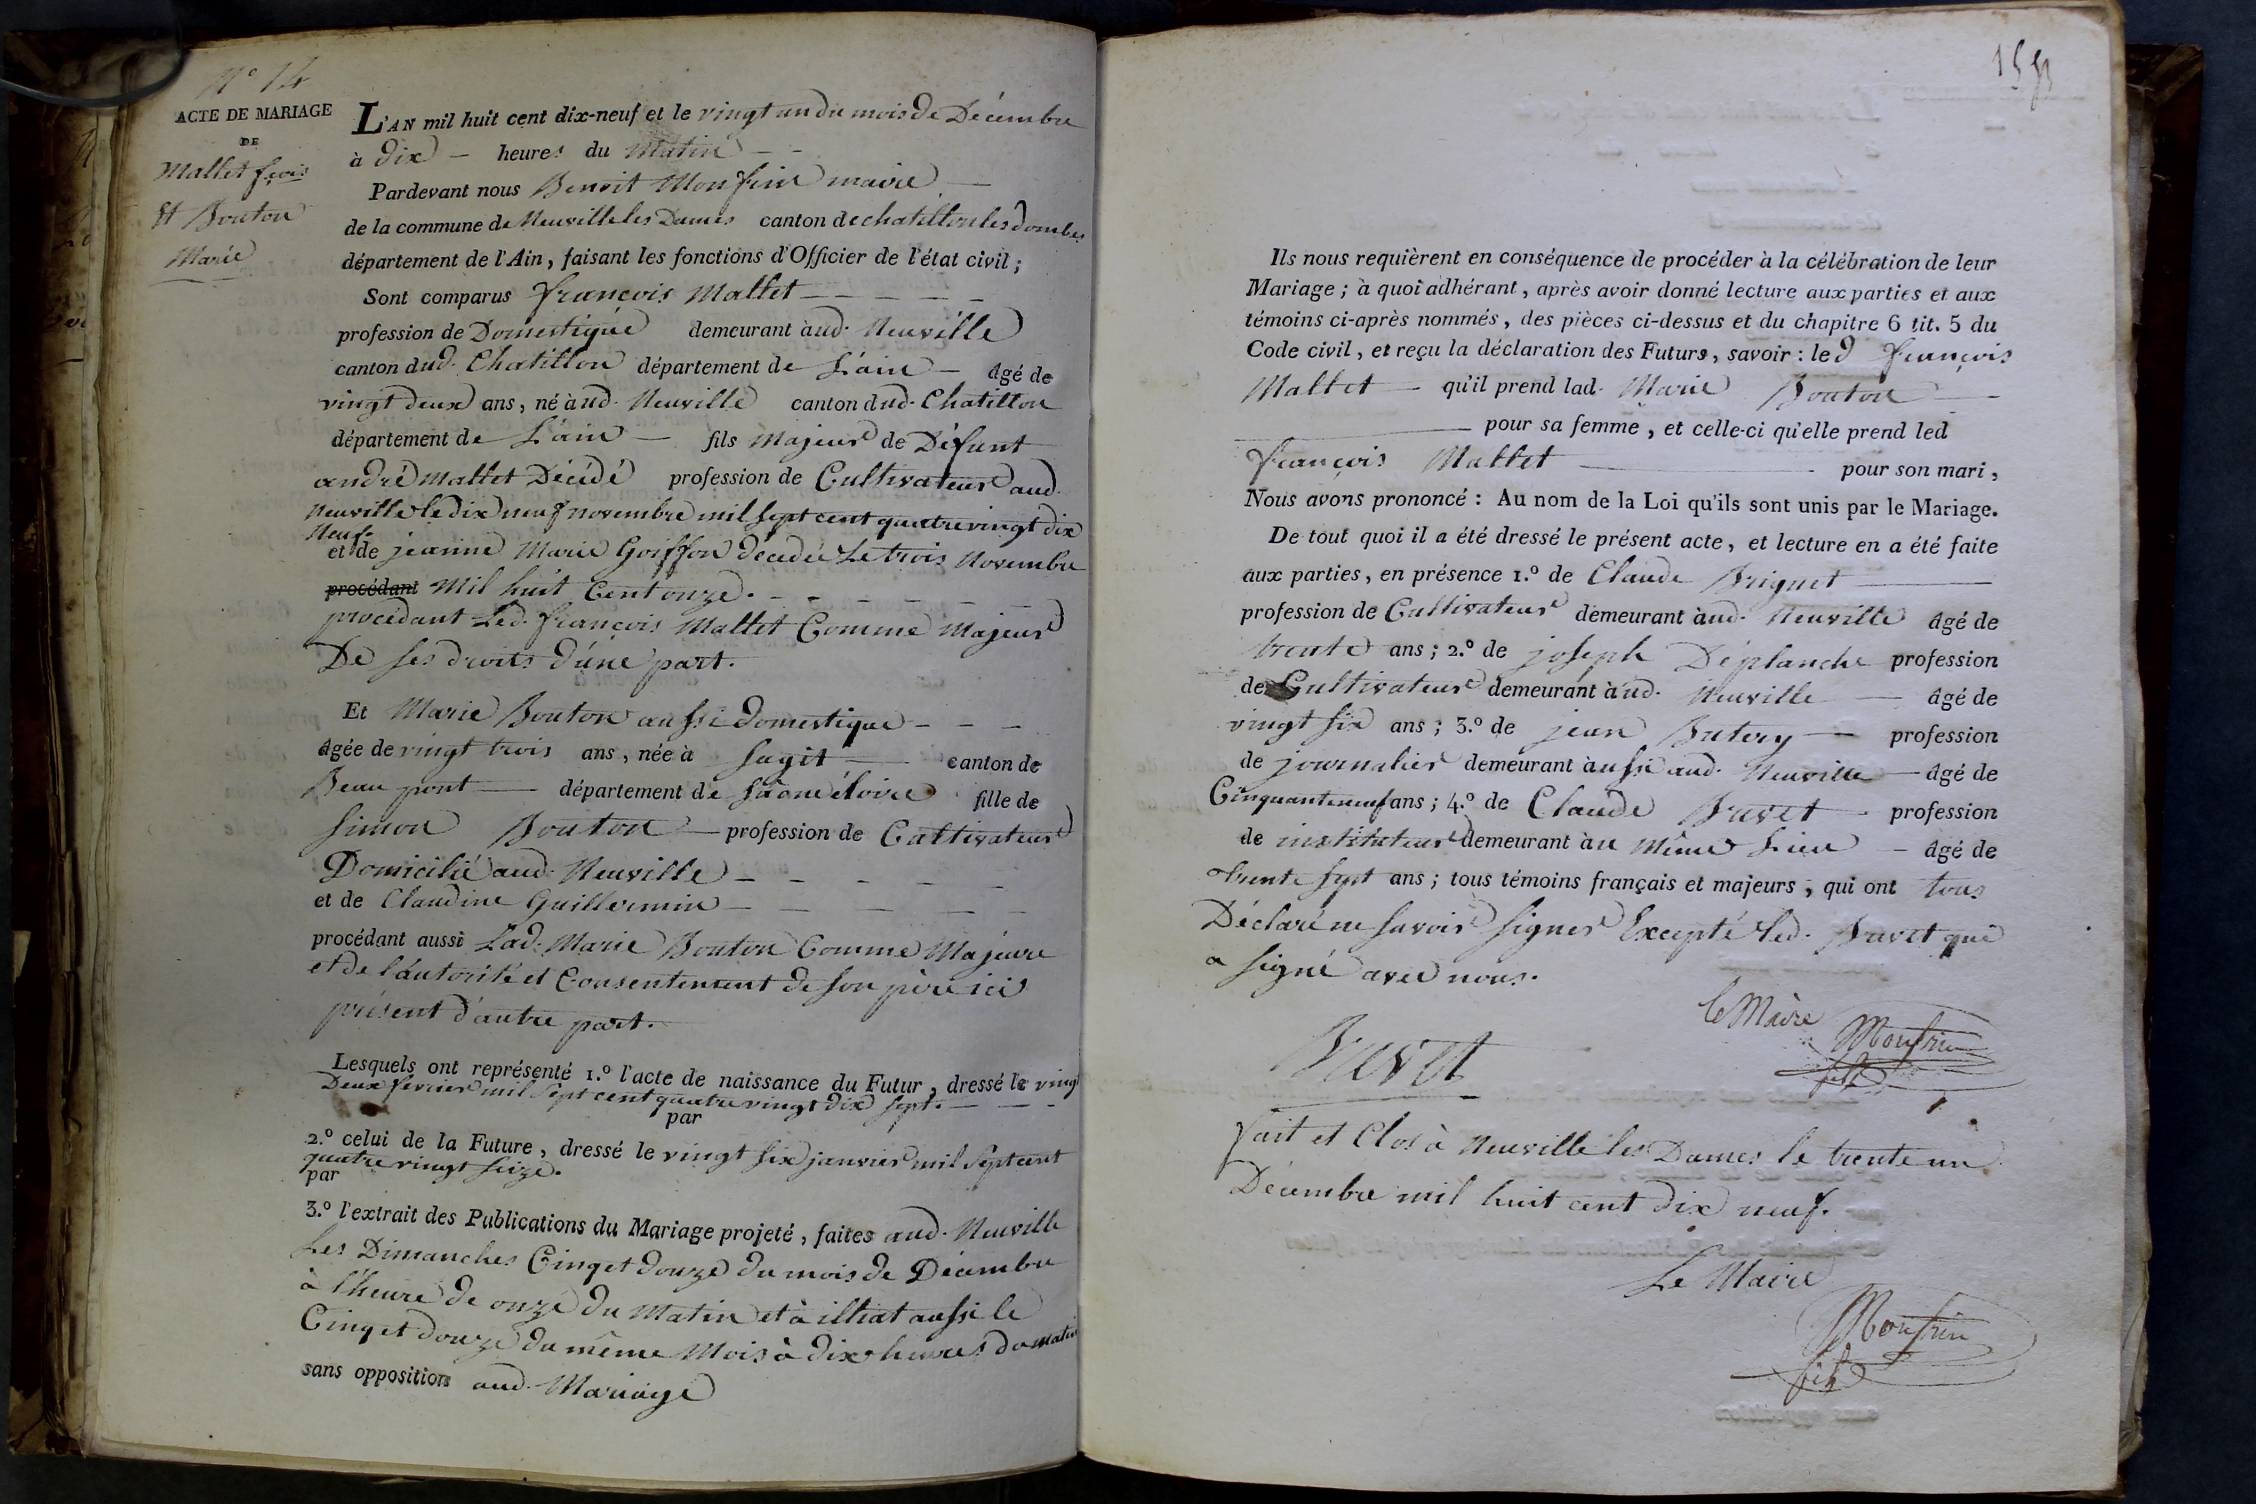 N° 14
ACTE DE MARIAGE
DE
Mallet fçois
Et Bouton
Marie
L'AN mil huit cent dix-neuf et le vingt un du mois de Décembre
à dix — heures du Matin — —
Pardevant nous Benoit Monfrin maire —
de la commune de Neuville les Dames canton de chatillon les dombes
département de l'Ain, faisant les fonctions d'Officier de l'état civil;
Sont comparus françois Mallet — — — — —
profession de Domestique demeurant àud. Neuville
canton dud. Chatillon département de L'ain — âgé de
vingt deux ans, né àud. Neuville canton dud. Chatillon
département de L'ain — fils Majeur de Défunt
andré Mallet Décédé profession de Cultivateur aud.
Neuville le dix neuf novembre mil sept cent quatre vingt dix
Neuf.
et de jeanne Marie Goiffon décedée Le trois Novembre
procédant Mil huit Cent onze. — — — — —
procédant Led. françois Mallet Comme Majeur
De ses droits d'une part.
Et Marie Bouton aussi domestique — — —
âgée de vingt trois ans, née à Sagit — canton de
Beau pont — département de Saône éloire fille de
Simon Bouton — profession de Cultivateur
Domicilié aud. Neuville — — — — —
et de Claudine Guillermin — — — — —
procédant aussi Lad. Marie Bouton Comme Majeure
et de l'autorité et Consentement de son père ici
présent d'autre part.
Lesquels ont représenté 1.º l'acte de naissance du Futur, dressé le vingt
Deux fevrier mil Sept cent quatre vingt dix sept. — — —
par
2.º celui de la Future, dressé le vingt six janvier mil Sept cent
quatre vingt seize.
par
3.º l'extrait des Publications du Mariage projeté, faites aud. Neuville
Les Dimanches Cinq et douze du mois de Décembre
à l'heure de onze du Matin et à illiat aussi le
Cinq et douze du même Mois à dix heures du matin
sans opposition aud. Mariage
Ils nous requièrent en conséquence de procéder à la célébration de leur
Mariage; à quoi adhérant, après avoir donné lecture aux parties et aux
témoins ci-après nommés, des pièces ci-dessus et du chapitre 6 tit. 5 du
Code civil, et reçu la déclaration des Futurs, savoir: le d françois
Mallet — qu'il prend lad. Marie Bouton —
— pour sa femme, et celle-ci qu'elle prend led
françois Mallet — pour son mari,
Nous avons prononcé: Au nom de la Loi qu'ils sont unis par le Mariage.
De tout quoi il a été dressé le présent acte, et lecture en a été faite
aux parties, en présence 1.º de Claude Briguet —
profession de Cultivateur demeurant àud. Neuville âgé de
trente ans; 2.º de joseph Déplanche profession
de Cultivateur demeurant àud. Neuville — âgé de
vingt six ans; 3.º de jean — profession
de journalier demeurant àussi aud. Neuville — âgé de
Cinquante neuf ans; 4.º de Claude Buvet — profession
de instituteur demeurant àu Même Lieu — âgé de
trente sept ans; tous témoins français et majeurs, qui ont tous
Déclaré ne savoir signer Excepté led. Buvet qui
a signé avec nous.
le Maire Monfrin
Buvet
fait et Clos à Neuville les Dames le trente un
Décembre mil huit cent dix neuf.
Le Maire
Monfrin